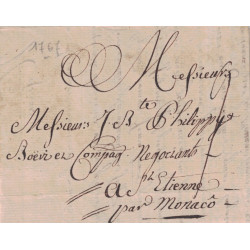 1767
Messieurs
Messieurs J Bte Philippe
Boëri et Compag Negociants
A St Etienne
par Monacô